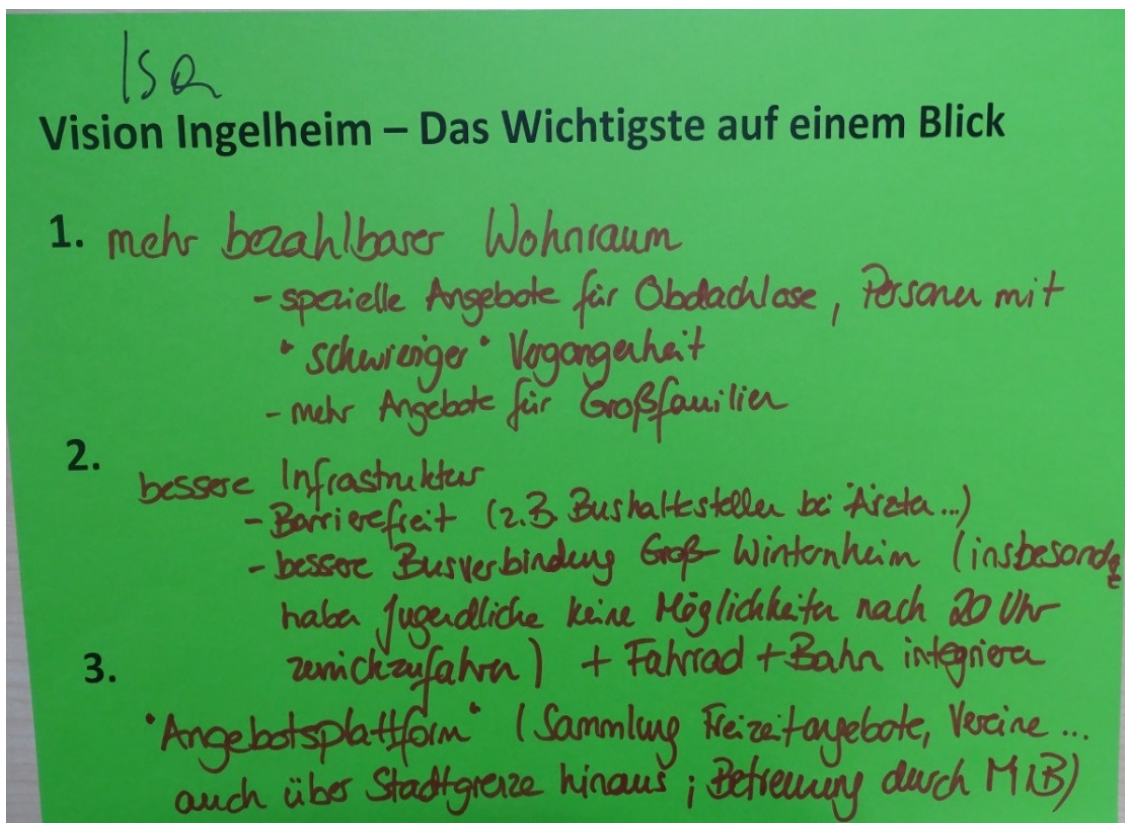 Isa
Vision Ingelheim – Das Wichtigste auf einem Blick
1. mehr bezahlbarer Wohnraum
- spezielle Angebote für Obdachlose, Personen mit
"schwieriger" Vergangenheit
- mehr Angebote für Großfamilien
2.
bessere Infrastruktur
- Barrierefreit (z.B. Bushaltestellen bei Ärzten...)
- bessere Busverbindung Groß-Winternheim (insbesonde
haben Jugendliche keine Möglichkeiten nach 20 Uhr
zurückzufahren) + Fahrrad + Bahn integrieren
3.
"Angebotsplattform" (Sammlung Freizeitangebote, Vereine...
auch über Stadtgrenze hinaus; Betreuung durch MIB)